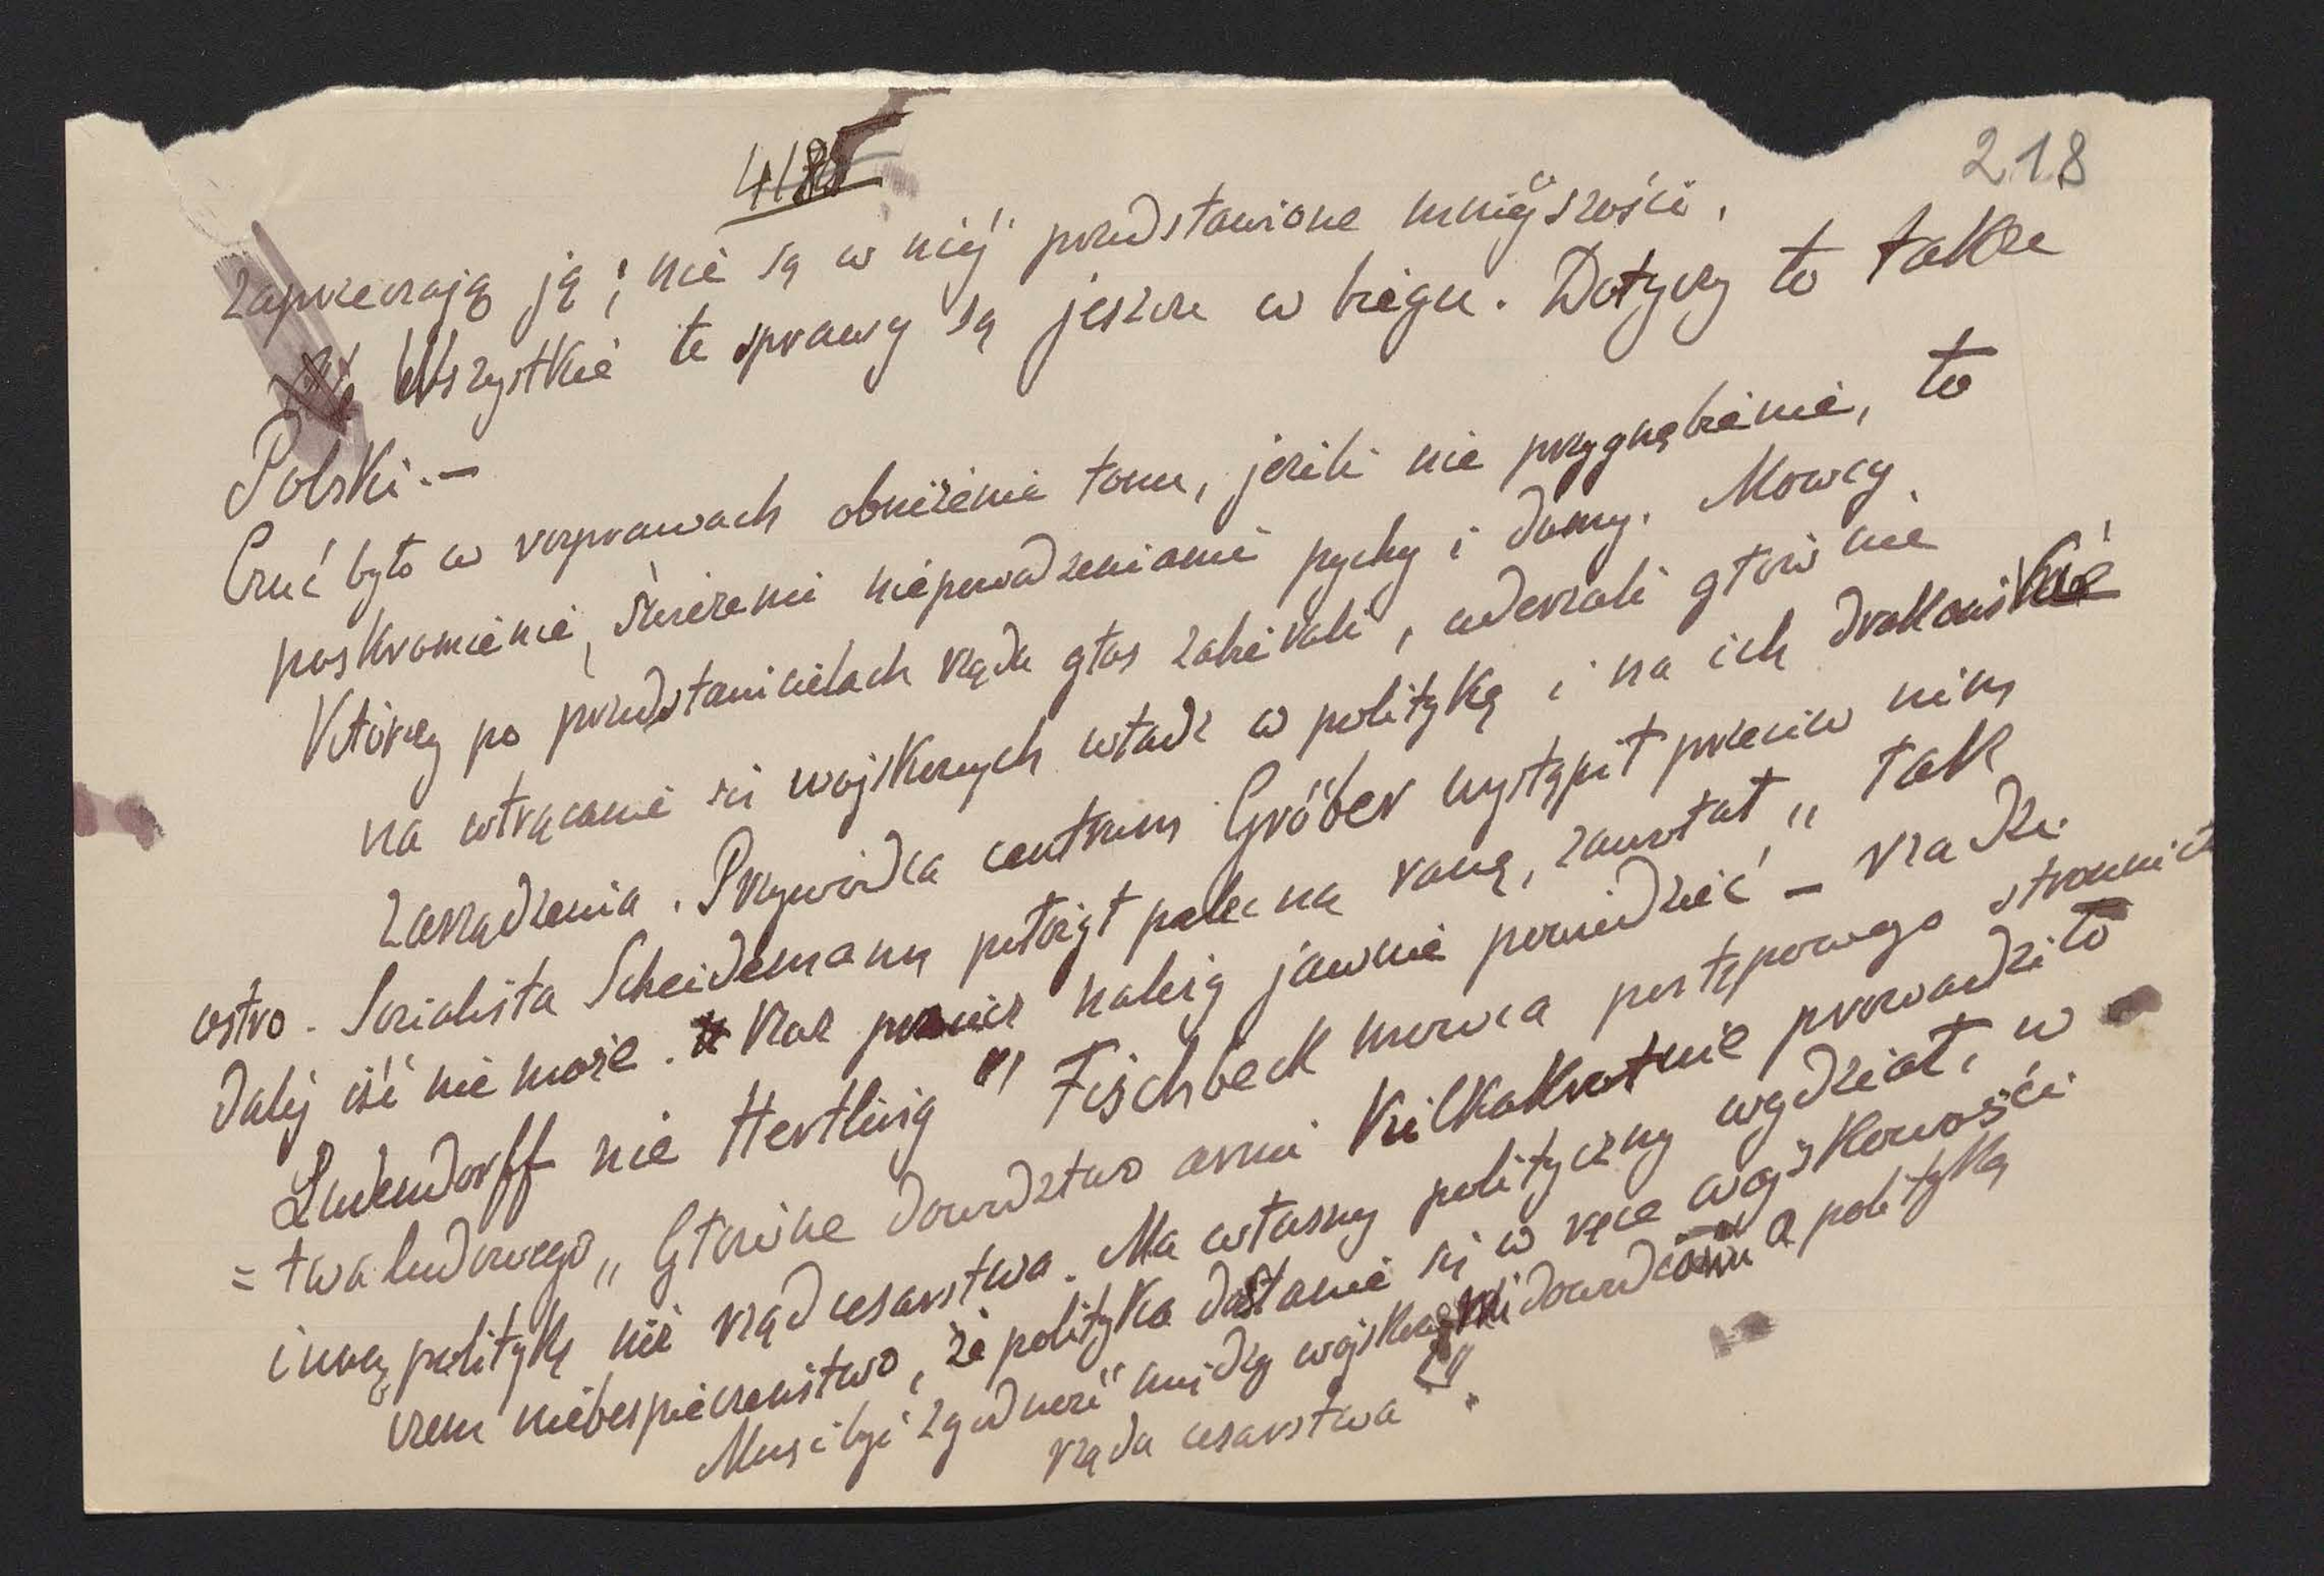 218
zaprzeczają ją; nie są w niéj przedstawione mniéjszości.
Wszystkie te sprawy są jeszcze w biegu. Dotyczy to także
Polski.—
Czuć było w rozprawach obniżenie tonu, jeżeli nie przygnębienie, to
poskromienie, niepowodzeniami pychy i dumy. Mowcy,
którzy po przedstawicielach rządu głos zabierali, uderzali głównie
na wtrącanie się wojskowych władz w politykę i na ich drakońskie
zarządzenia. Przywódca centrum Gröber wystąpił przeciw nim
ostro. Socialista Scheidemann położył palec na ranę, zawołał „Tak
daléj iść nie może. Raz należy jawnie powiedzieć – rządzi
Ludendorff nie Hertling" Fischbeck mowca postępowego stronnic
= twa ludowego „Główne dowództwo armi kilkakrotnie prowadziło
inną politykę niż rząd cesarstwa. Ma własny polityczny wydział, w
czem niebespieczeństwo, że polityka dostanie się w ręce wojskowości
Musi być zgodność między wojskowym dowództwem a polityką
rządu cesarstwa".